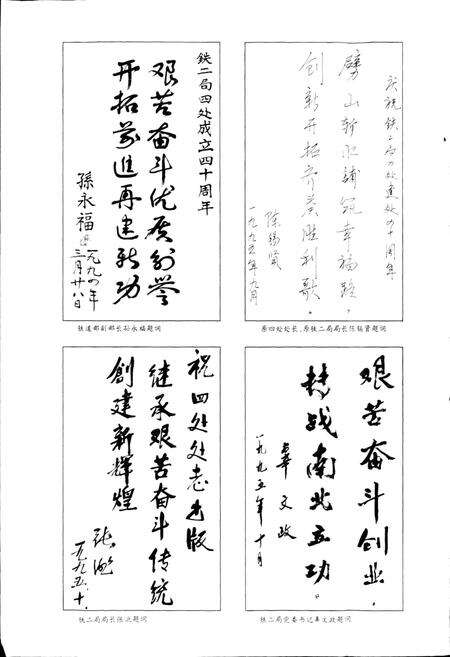 铁二局四处成立四十周年
艰苦奋斗优质创誉
开拓前进再建新功
孫永福
一九九四年
三月廿八日
铁道部副部长孙永福题词
庆祝铁二局四处建处四十周年
劈山斩水铺筑幸福路
创新开拓齐奏胜利歌。
陈锡贤
一九九五年九月
原四处处长、原铁二局局长陈锡贤题词
祝四处处志出版
继承艰苦奋斗传统
創建新輝煌
一九九五、十、
铁二局局长张
题词
艰苦奋斗创业，
转战南北立功。
文政
一九九五年十月
铁二局党委书记
文政题词